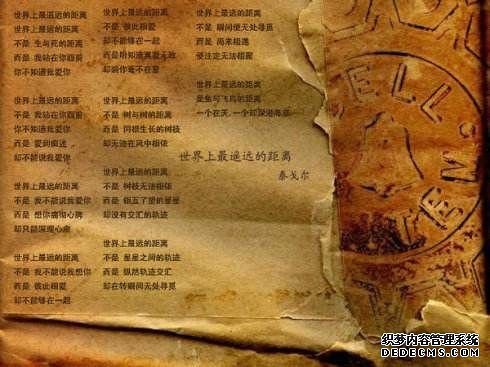 世界上最遥远的距离
不是 生与死的距离
而是 我站在你面前
你不知道我爱你
世界上最远的距离
不是 我站在你面前
你不知道我爱你
而是 爱到痴迷
却不能说我爱你
世界上最远的距离
不是 我不能说我爱你
而是 想你痛彻心脾
却只能深埋心底
世界上最远的距离
不是 我不能说我想你
而是 彼此相爱
却不能够在一起
世界上最远的距离
不是 彼此相爱
却不能够在一起
而是明知道真爱无敌
却装作毫不在意
世界上最远的距离
不是 树与树的距离
而是 同根生长的树枝
却无法在风中相依
世界上最远的距离
不是 树枝无法相依
而是 相互了望的星星
却没有交汇的轨迹
世界上最远的距离
不是 星星之间的轨迹
而是 纵然轨迹交汇
却在转瞬间无处寻觅
世界上最远的距离
不是 瞬间便无处寻觅
而是 尚未相遇
便注定无法相聚
世界上最远的距离
是鱼与飞鸟的距离
一个在天，一个却深潜海底
世界上最遥远的距离
泰戈尔
BELL
织梦内容管理系统
DEDECMS.COM